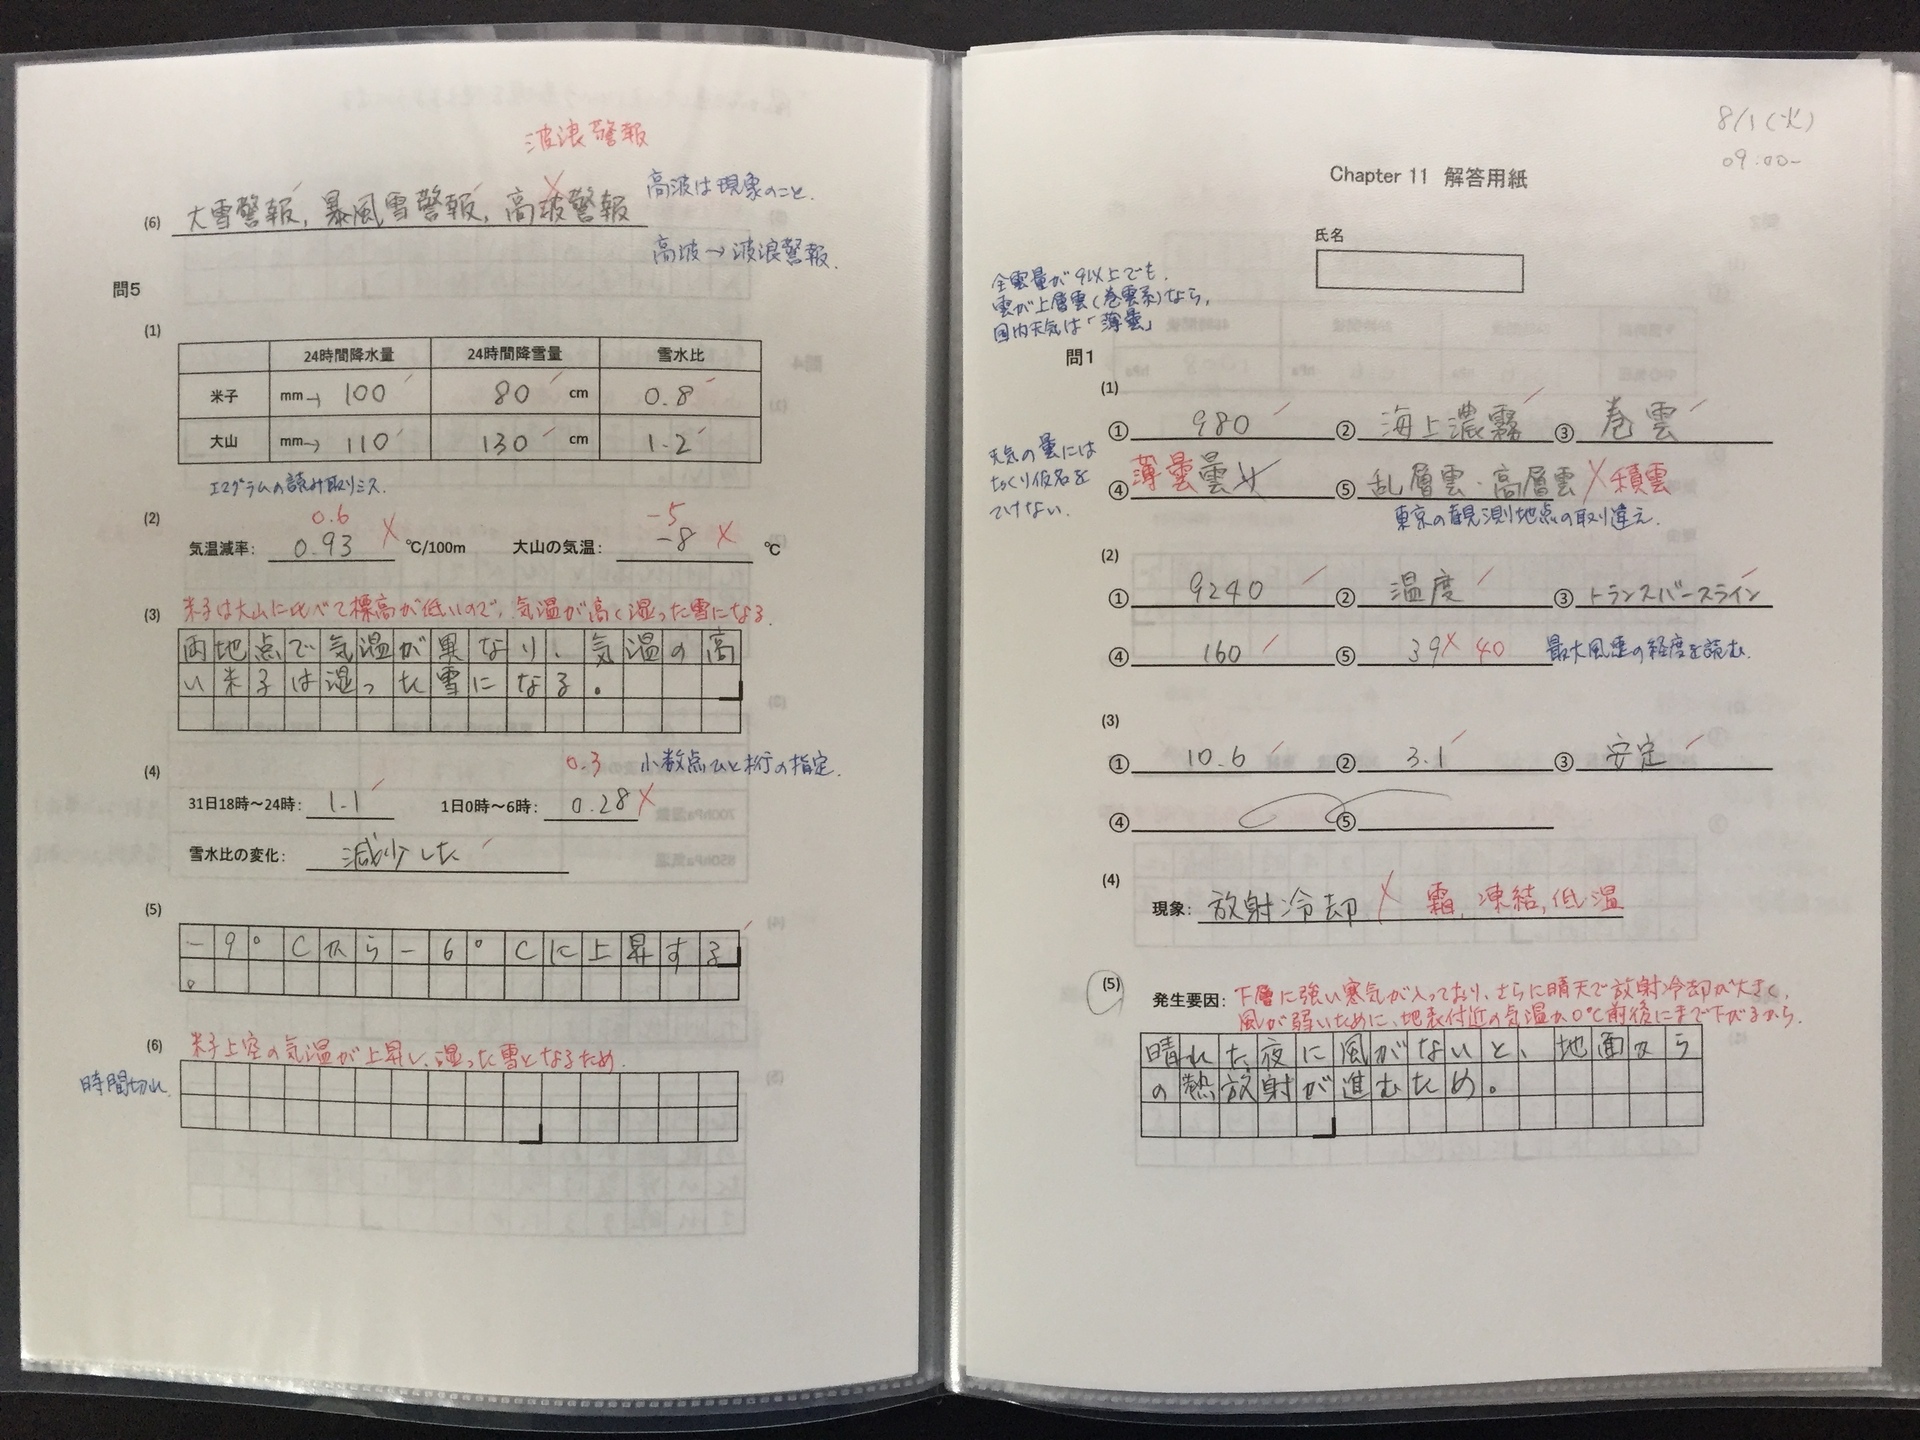 波浪警報
(6) 大雪警報, 暴風雪警報, 高波警報
高波は現象のこと.
高波→波浪警報.
問5
(1)
24時間降水量 24時間降雪量 雪水比
米子 mm→ 100 80 cm 0.8
大山 mm→ 110 130 cm 1.2
エマグラムの読み取りミス.
(2)
0.6 -5
気温減率: 0.93 ℃/100m 大山の気温: -8 ℃
(3) 米子は大山に比べて標高が低いので、気温が高く湿った雪になる.
両地点で気温が異なり、気温の高
い米子は湿った雪になる。
(4)
0.3 小数点ひと桁の指定.
31日18時~24時: 1.1 1日0時~6時: 0.28
雪水比の変化: 減少した
(5)
-9°Cから-6°Cに上昇する
。
(6) 米子上空の気温が上昇し、湿った雪となるため.
時間切れ.
8/1(火)
09:00-
Chapter 11 解答用紙
氏名
全雲量が9以上でも、
雲が上層雲(巻雲系)なら、
国内天気は「薄曇」
問1
(1)
① 980 ② 海上濃霧 ③ 巻雲
天気の曇には
おくり仮名を
つけない.
④ 薄曇 曇り ⑤ 乱層雲・高層雲 積雲
東京の観測地点の取り違え.
(2)
① 9240 ② 温度 ③ トランスバースライン
④ 160 ⑤ 39 40 最大風速の経度を読む.
(3)
① 10.6 ② 3.1 ③ 安定
④ ⑤
(4)
現象: 放射冷却 霜, 凍結, 低温
(5)
発生要因: 下層に強い寒気が入っており、さらに晴天で放射冷却が大きく、
風が弱いために、地表付近の気温が0℃前後にまで下がるから.
晴れた夜に風がないと、地面から
の熱放射が進むため。